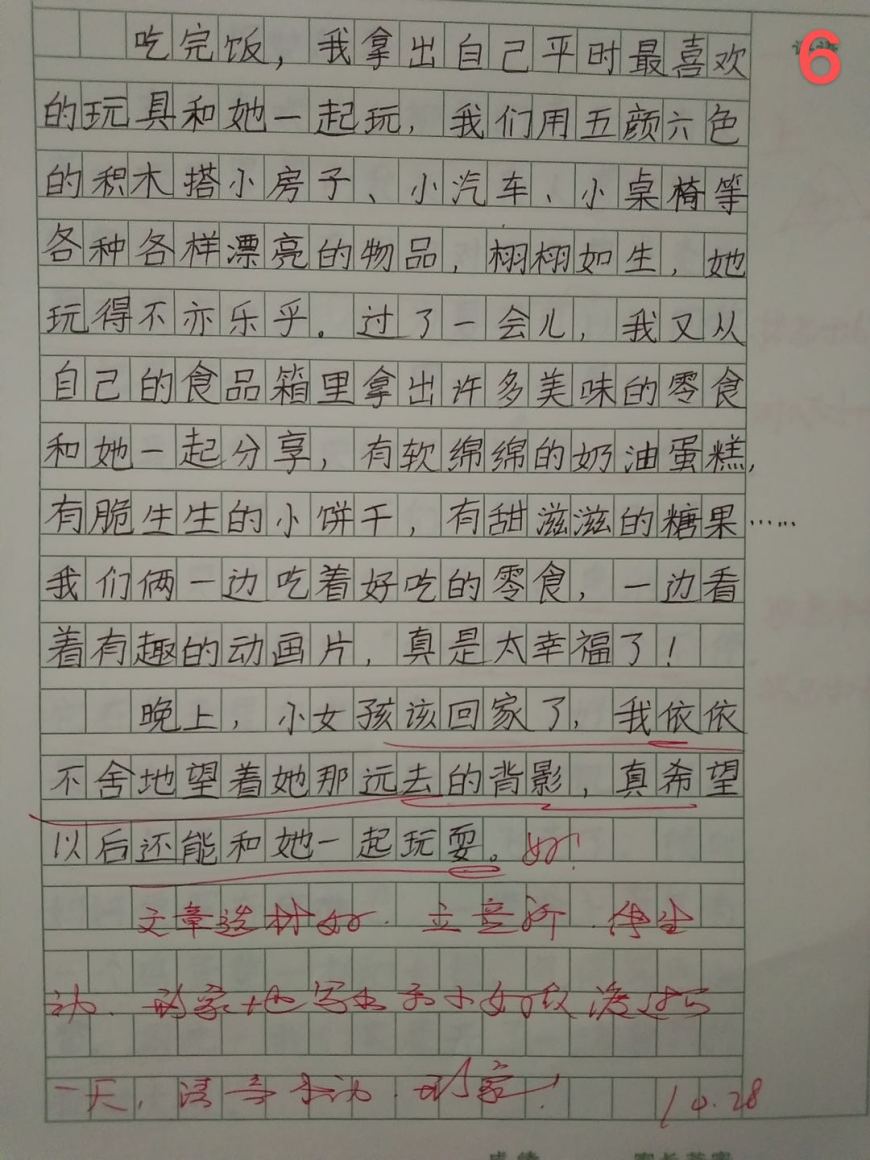 6
吃完饭，我拿出自己平时最喜欢
的玩具和她一起玩，我们用五颜六色
的积木搭小房子、小汽车、小桌椅等
各种各样漂亮的物品，栩栩如生，她
玩得不亦乐乎。过了一会儿，我又从
自己的食品箱里拿出许多美味的零食
和她一起分享，有软绵绵的奶油蛋糕，
有脆生生的小饼干，有甜滋滋的糖果……
我们俩一边吃着好吃的零食，一边看
着有趣的动画片，真是太幸福了！
晚上，小女孩该回家了，我依依
不舍地望着她那远去的背影，真希望
以后还能和她一起玩耍。好！
文章选材好.立意新
一天，
10.28